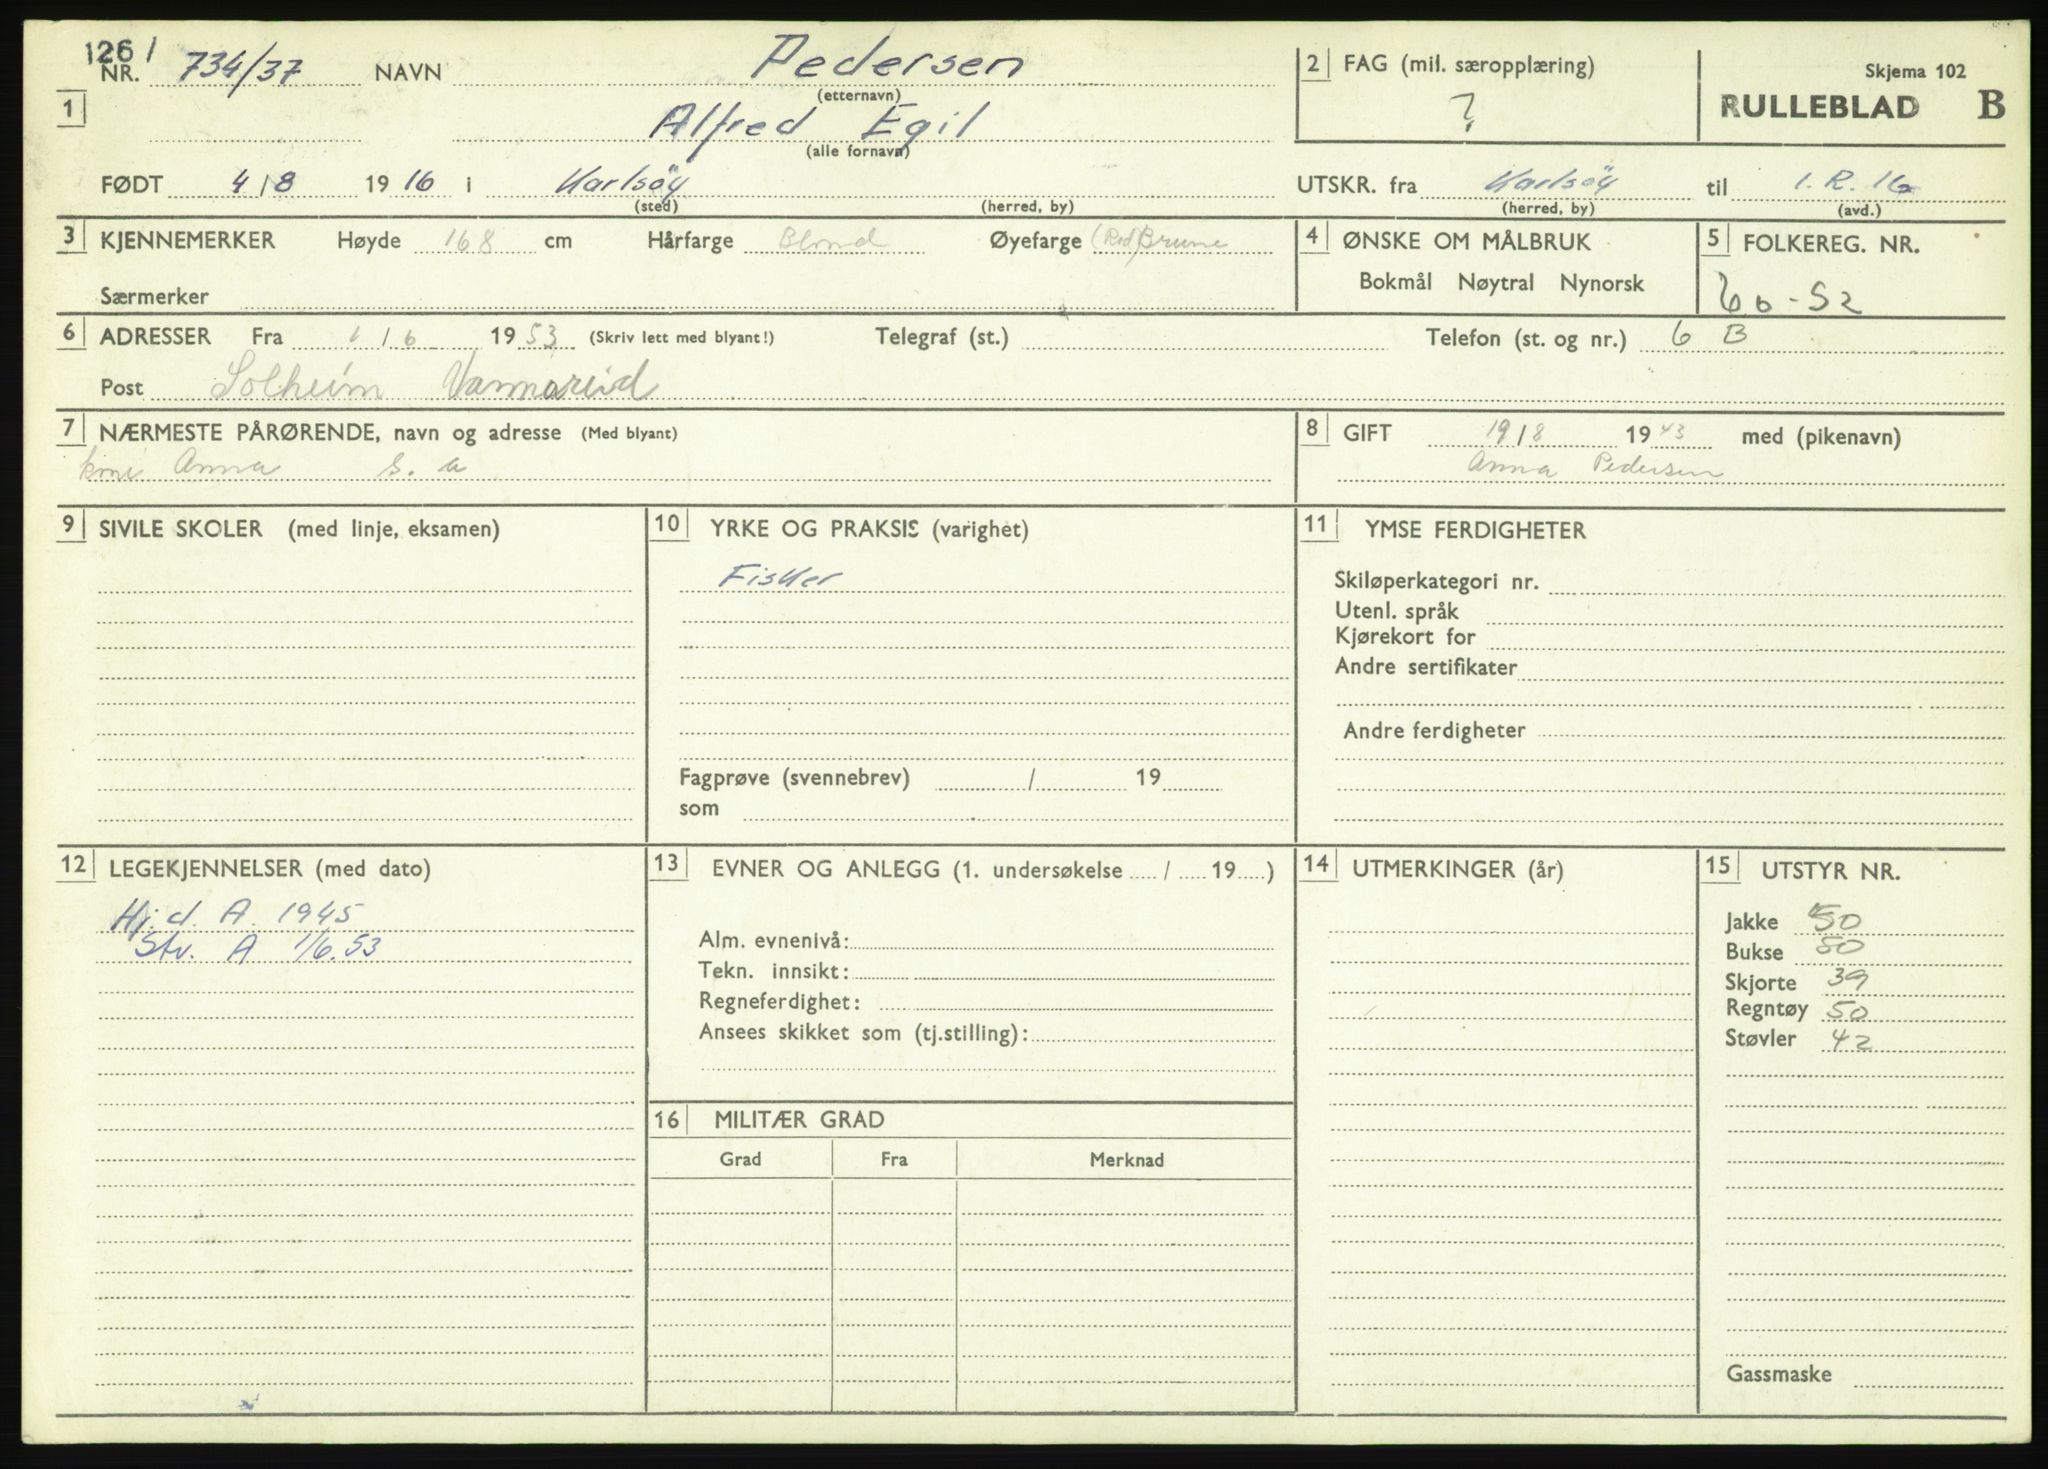 1261
NR. 734/37 NAVN Pedersen
(etternavn)
1 Alfred Egil
(alle fornavn)
FØDT 4/8 1916 i Karlsöy
(sted) (herred, by)
2 FAG (mil. særopplæring)
?
Skjema 102
RULLEBLAD B
UTSKR. fra Karlsöy til I.R. 16
(herred, by) (avd.)
3 KJENNEMERKER Høyde 168 cm Hårfarge Blond Øyefarge (Rød) Brune
Særmerker
4 ØNSKE OM MÅLBRUK
Bokmål Nøytral Nynorsk
5 FOLKEREG. NR.
60-52
6 ADRESSER Fra 1/6 1953 (Skriv lett med blyant!) Telegraf (st.) Telefon (st. og nr.) 6 B
Post Solheim Vannareid
7 NÆRMESTE PÅRØRENDE, navn og adresse (Med blyant)
kone Anna s. a
8 GIFT 19/8 1943 med (pikenavn)
Anna Pedersen
9 SIVILE SKOLER (med linje, eksamen)
10 YRKE OG PRAKSIS (varighet)
Fisker
Fagprøve (svennebrev) / 19
som
11 YMSE FERDIGHETER
Skiløperkategori nr.
Utenl. språk
Kjørekort for
Andre sertifikater
Andre ferdigheter
12 LEGEKJENNELSER (med dato)
Hj. d. A. 1945
Stv. A 1/6.53
13 EVNER OG ANLEGG (1. undersøkelse / 19 )
Alm. evnenivå:
Tekn. innsikt:
Regneferdighet:
Ansees skikket som (tj.stilling):
14 UTMERKINGER (år)
15 UTSTYR NR.
Jakke 50
Bukse 50
Skjorte 39
Regntøy 50
Støvler 42
Gassmaske
16 MILITÆR GRAD
Grad Fra Merknad